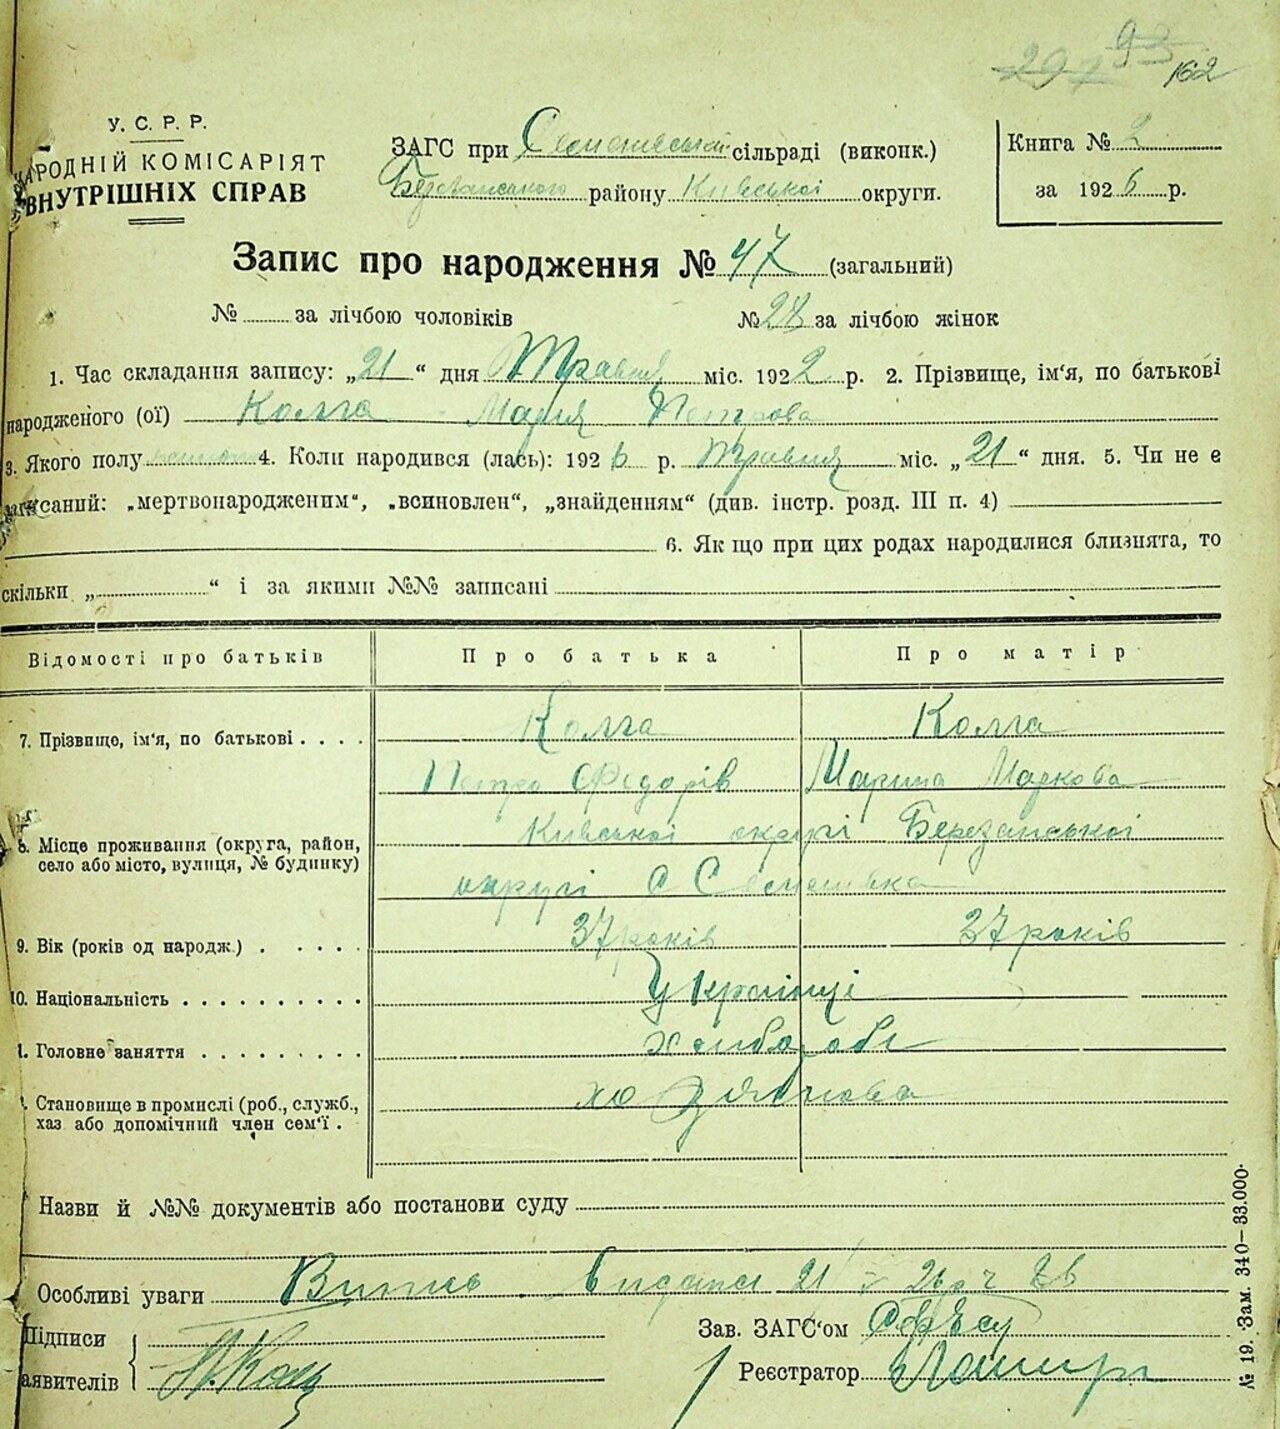 93
297
162
У. С. Р. Р.
НАРОДНІЙ КОМІСАРІЯТ
ВНУТРІШНІХ СПРАВ
ЗАГС при Семенівській сільраді (виконк.)
Березанського району Київської округи.
Книга № 2
за 1926 р.
Запис про народження № 47 (загальний)
№ за лічбою чоловіків № 28 за лічбою жінок
1. Час складання запису: „21“ дня Травня міс. 1922 р. 2. Прізвище, ім'я, по батькові
народженого (ої) Колга Мария Петрова
3. Якого полу 4. Коли народився (лась): 1926 р. Травня міс. „21“ дня. 5. Чи не є
записаний: „мертвонародженим“, „всиновлен“, „знайденням“ (див. інстр. розд. III п. 4)
6. Як що при цих родах народилися близнята, то
скільки „ “ і за якими №№ записані
Відомості про батьків Про батька Про матір
7. Прізвище, ім'я, по батькові . . . . Колга Колга
Петро Федорів Марина Маркова
8. Місце проживання (округа, район, село або місто, вулиця, № будинку) Київської округі Березанської
округі С Семенівка
9. Вік (років од народж.) . . . . . 37 років 27 років
10. Національність . . . . . . . . . . Українці
1. Головне заняття . . . . . . . . . хлібороби
Становище в промислі (роб., служб.,
хаз або допомічний член сем'ї .
Назви й №№ документів або постанови суду
Особливі уваги Випись видана 21
Підписи
аявителів
Зав. ЗАГС'ом
Реєстратор
№ 19. Зам. 340—33.000.